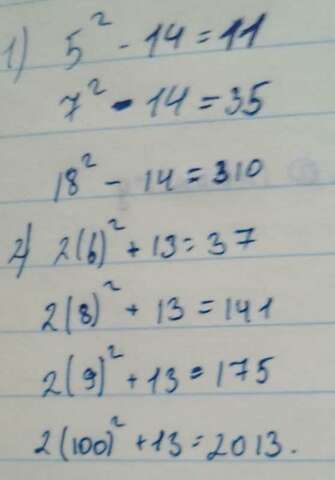 1) 5² - 14 = 11
7² - 14 = 35
18² - 14 = 310
2) 2(6)² + 13 = 37
2(8)² + 13 = 141
2(9)² + 13 = 175
2(100)² + 13 = 2013.